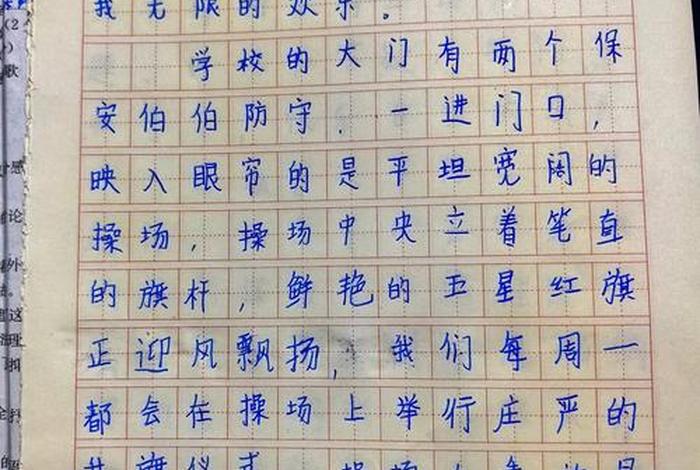 我无限的欢乐。
学校的大门有两个保
安伯伯防守．一进门口，
映入眼帘的是平坦宽阔的
操场，操场中央立着笔直
的旗杆，鲜艳的五星红旗
正迎风飘扬，我们每周一
都会在操场上举行庄严的
升旗仪式